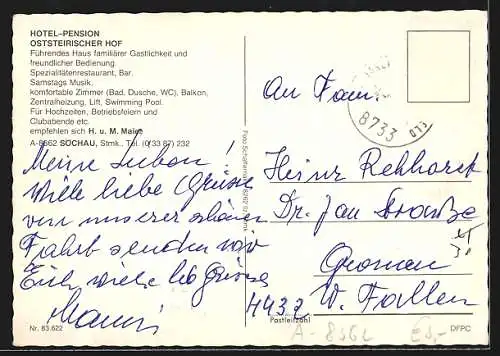 HOTEL-PENSION
OSTSTEIRISCHER HOF
Führendes Haus familiärer Gastlichkeit und
freundlicher Bedienung
Spezialitätenrestaurant, Bar.
Samstags Musik,
komfortable Zimmer (Bad, Dusche, WC), Balkon,
Zentralheizung, Lift, Swimming Pool.
Für Hochzeiten, Betriebsfeiern und
Clubabende etc.
empfehlen sich H. u. M. Maier
A-8362 SÖCHAU, Stmk., Tel. (0/33 87) 232
Meine Lieben!
Viele liebe Grüsse
von unserer schönen
Fahrt senden wir
Euch viele lb Grüsse
Mami
Nr. 83.622
8733
An Fam.
Heinz Rehhorst
Dr. Jan Straße
Gronau
4432 W. Fallen
Postleitzahl
A-8362
DFPC